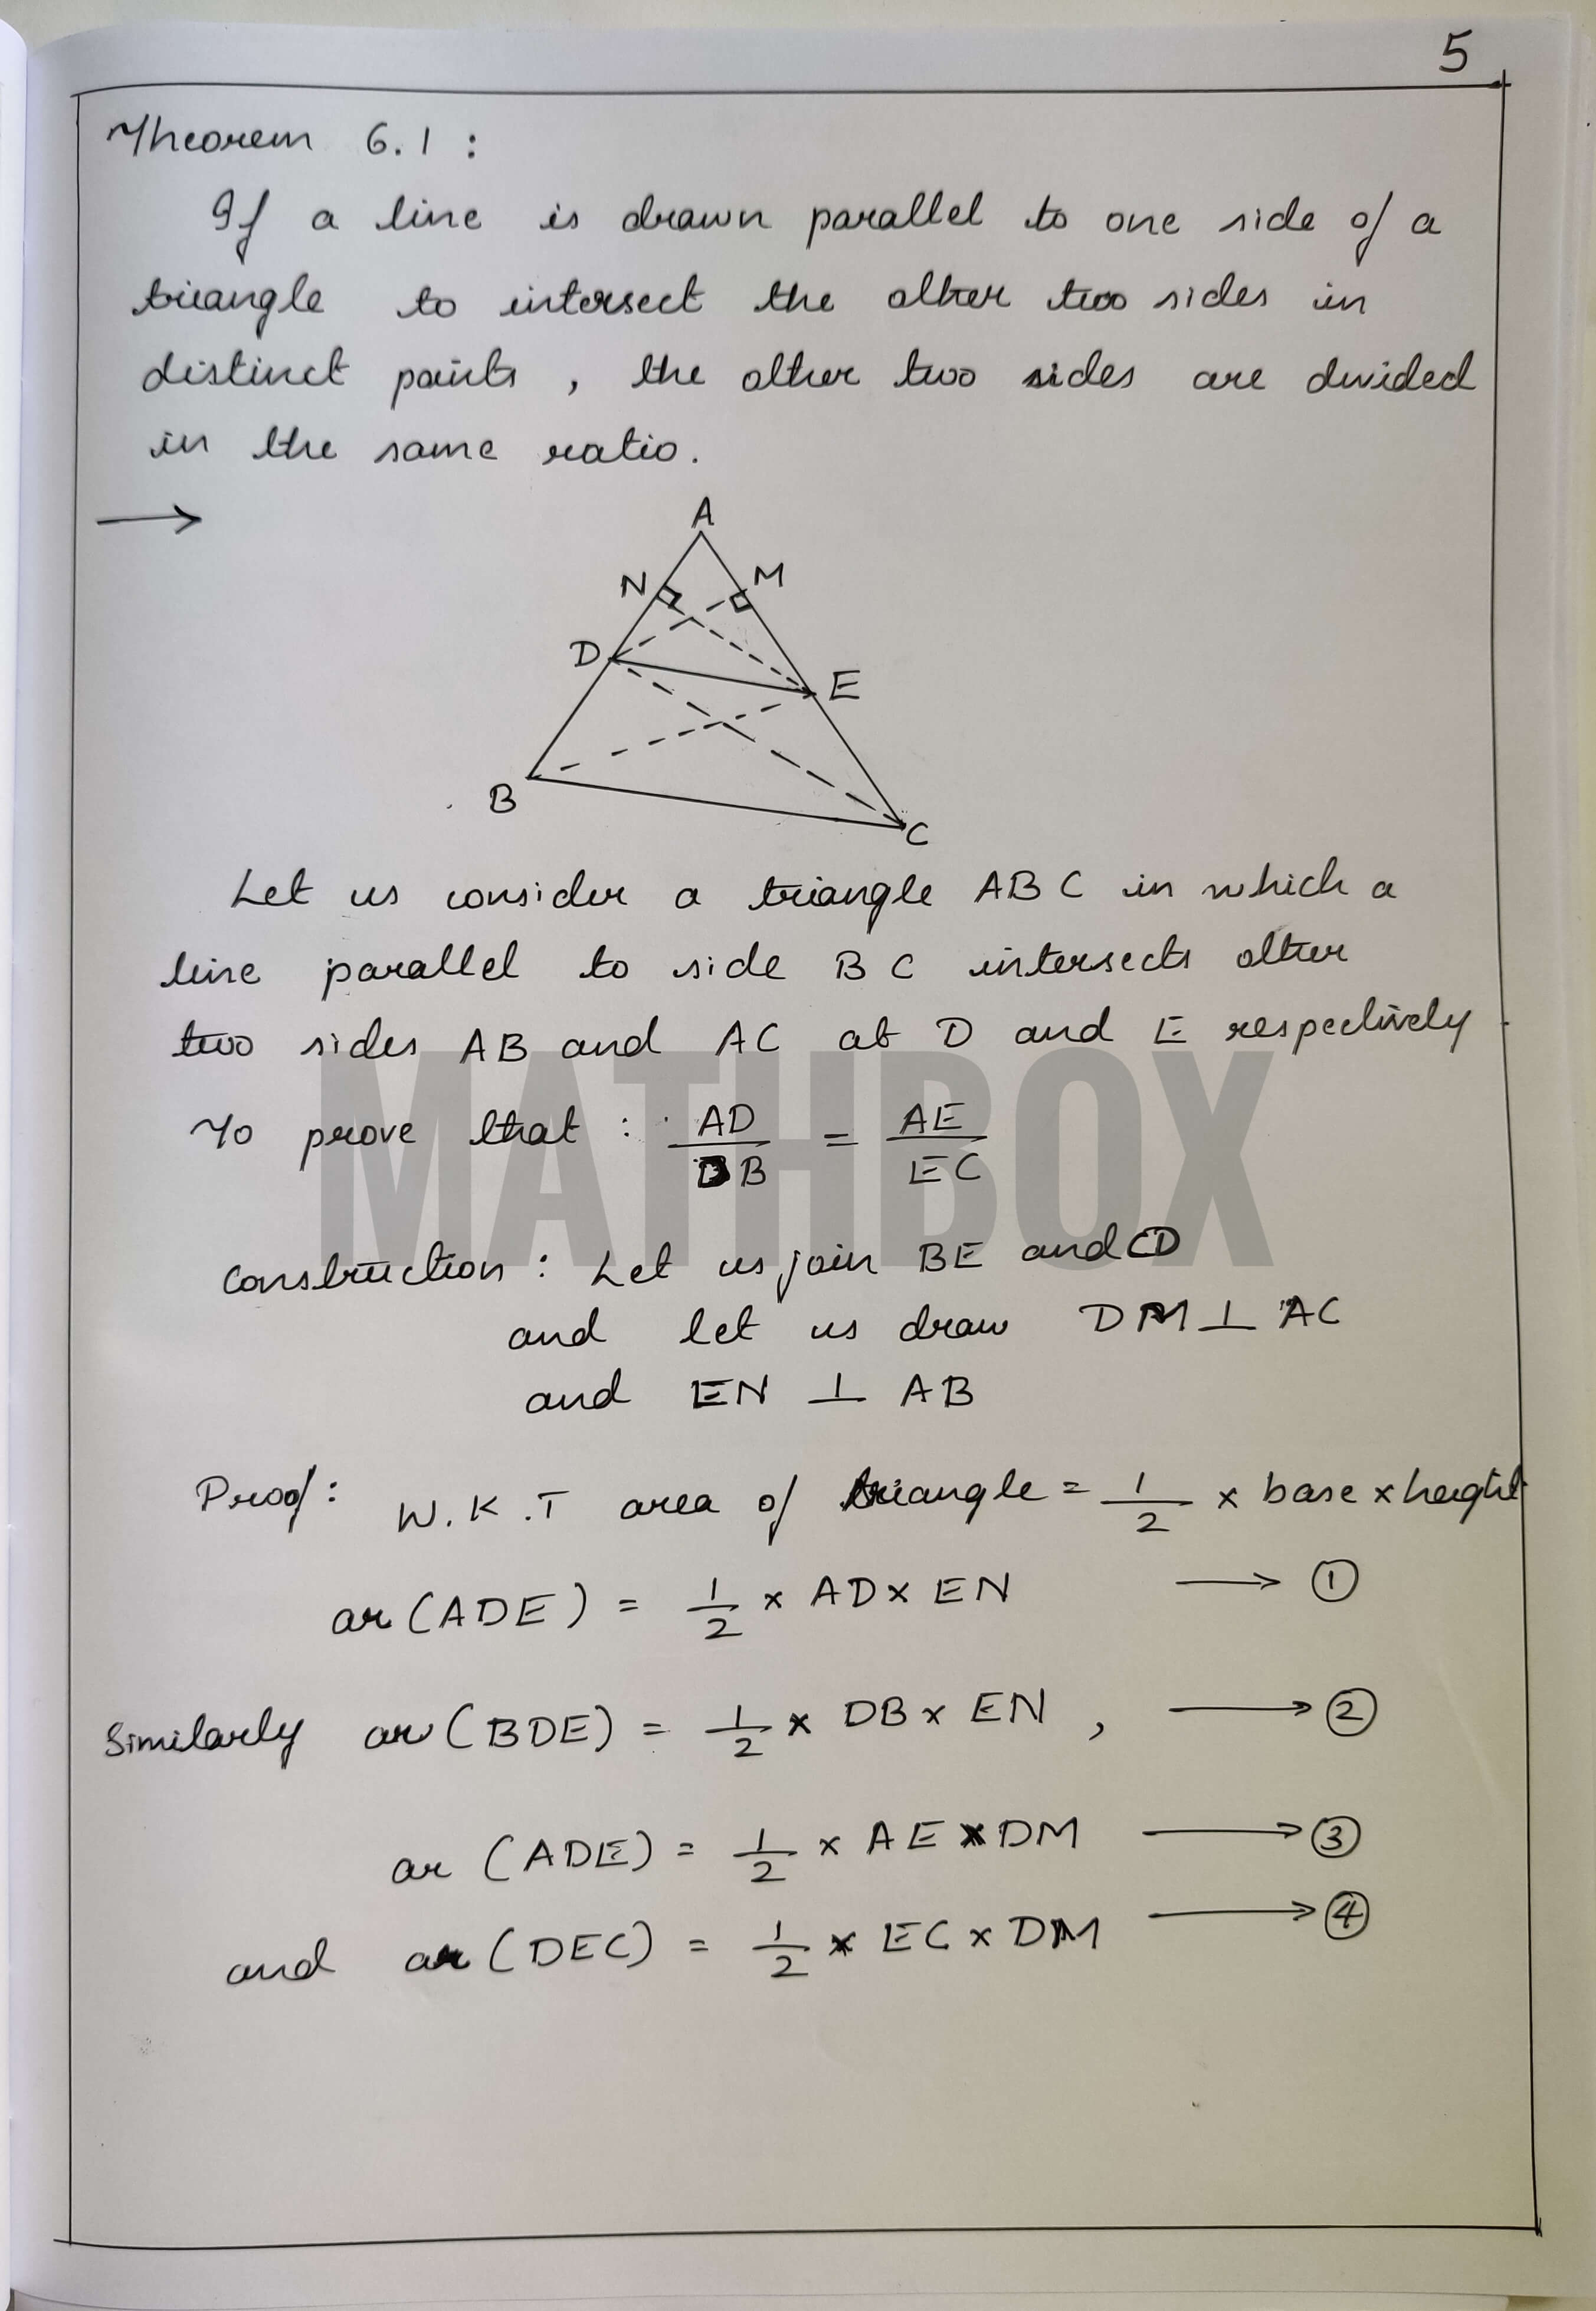 5
Theorem 6.1 :
If a line is drawn parallel to one side of a
triangle to intersect the other two sides in
distinct points , the other two sides are divided
in the same ratio.
→
A
N M
D E
B
C
Let us consider a triangle ABC in which a
line parallel to side BC intersects other
two sides AB and AC at D and E respectively.
MATHBOX
To prove that : AD/DB = AE/EC
Construction : Let us join BE and CD
and let us draw DM ⊥ AC
and EN ⊥ AB
Proof : W.K.T area of triangle = 1/2 × base × height
ar(ADE) = 1/2 × AD × EN → ①
Similarly ar(BDE) = 1/2 × DB × EN , → ②
ar (ADE) = 1/2 × AE × DM → ③
and ar(DEC) = 1/2 × EC × DM → ④